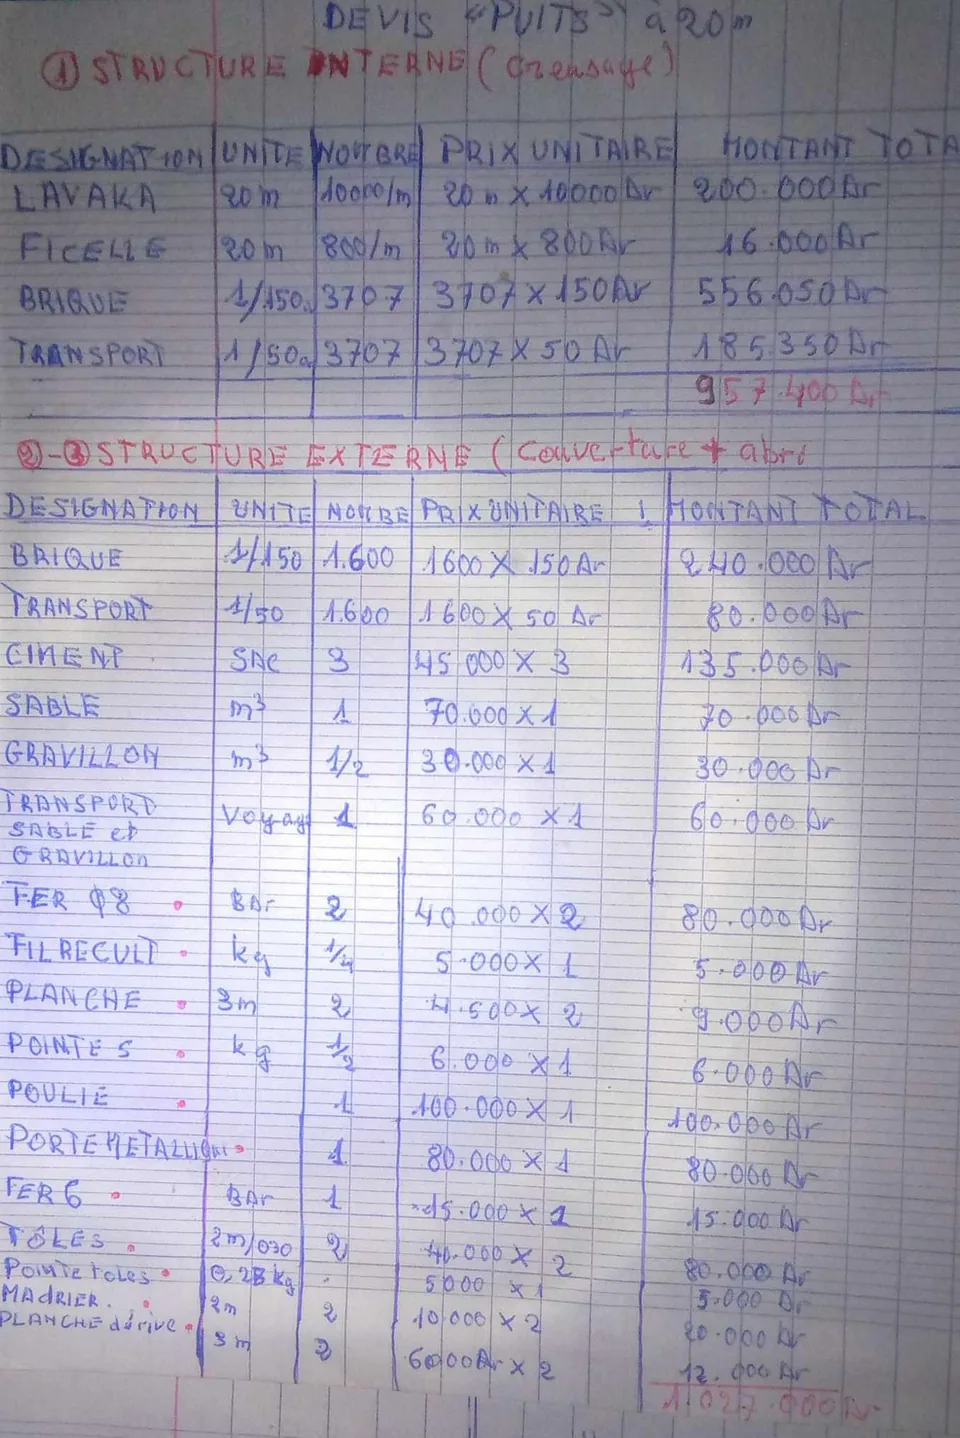 DEVIS "PUITS" à 20m
① STRUCTURE INTERNE (Creusage)
DESIGNATION UNITE NOMBRE PRIX UNITAIRE MONTANT TOTA
LAVAKA 20m 10000/m 20m x 10000Ar 200.000Ar
FICELLE 20m 800/m 20m x 800Ar 16.000Ar
BRIQUE 1/150a 3707 3707 x 150Ar 556.050Ar
TRANSPORT 1/50a 3707 3707 x 50 Ar 185.350Ar
957.400Ar
②-③ STRUCTURE EXTERNE (Couverture + abri
DESIGNATION UNITE NOMBRE PRIX UNITAIRE MONTANT TOTAL
BRIQUE 1/150 1.600 1600 x 150Ar 240.000Ar
TRANSPORT 1/50 1.600 1600 x 50 Ar 80.000Ar
CIMENT SAC 3 45 000 x 3 135.000Ar
SABLE m³ 1 70.000 x 1 70.000Ar
GRAVILLON m³ 1/2 30.000 x 1 30.000Ar
TRANSPORT Voyag 1 60.000 x 1 60.000Ar
SABLE et
GRAVILLON
FER φ8 BAr 2 40.000 x 2 80.000Ar
FIL RECUIT kg 1/4 5.000 x 1 5.000Ar
PLANCHE 3m 2 4.500 x 2 9.000Ar
POINTE 5 kg 1/2 6.000 x 1 6.000Ar
POULIE 1 100.000 x 1 100.000Ar
PORTE METALLIQUE 1 80.000 x 1 80.000Ar
FER 6 BAr 1 15.000 x 1 15.000Ar
TÔLES 2m/030 2 40.000 x 2 80.000Ar
Pointe toles 0,25 kg 5000 x 1 5.000 Ar
MAdRIER. 2m 2 10.000 x 2 20.000Ar
PLANCHE dérive 3m 2 6000Ar x 2 12.000Ar
1.027.000Ar